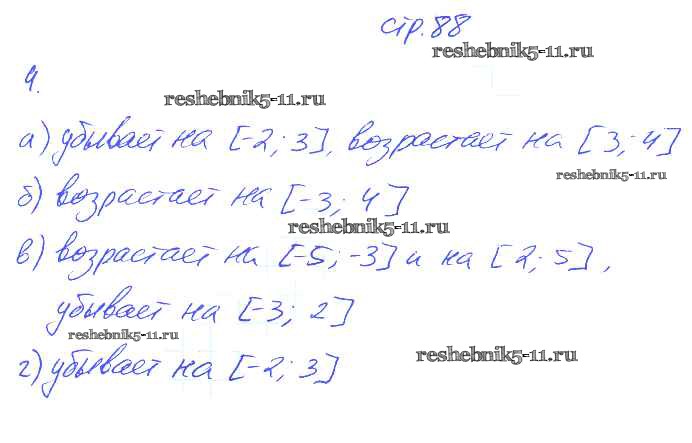 стр. 88
reshebnik5-11.ru
4.
reshebnik5-11.ru
а) убывает на [-2; 3], возрастает на [3; 4]
reshebnik5-11.ru
б) возрастает на [-3; 4]
reshebnik5-11.ru
в) возрастает на [-5; -3] и на [2; 5],
убывает на [-3; 2]
reshebnik5-11.ru
reshebnik5-11.ru
г) убывает на [-2; 3]